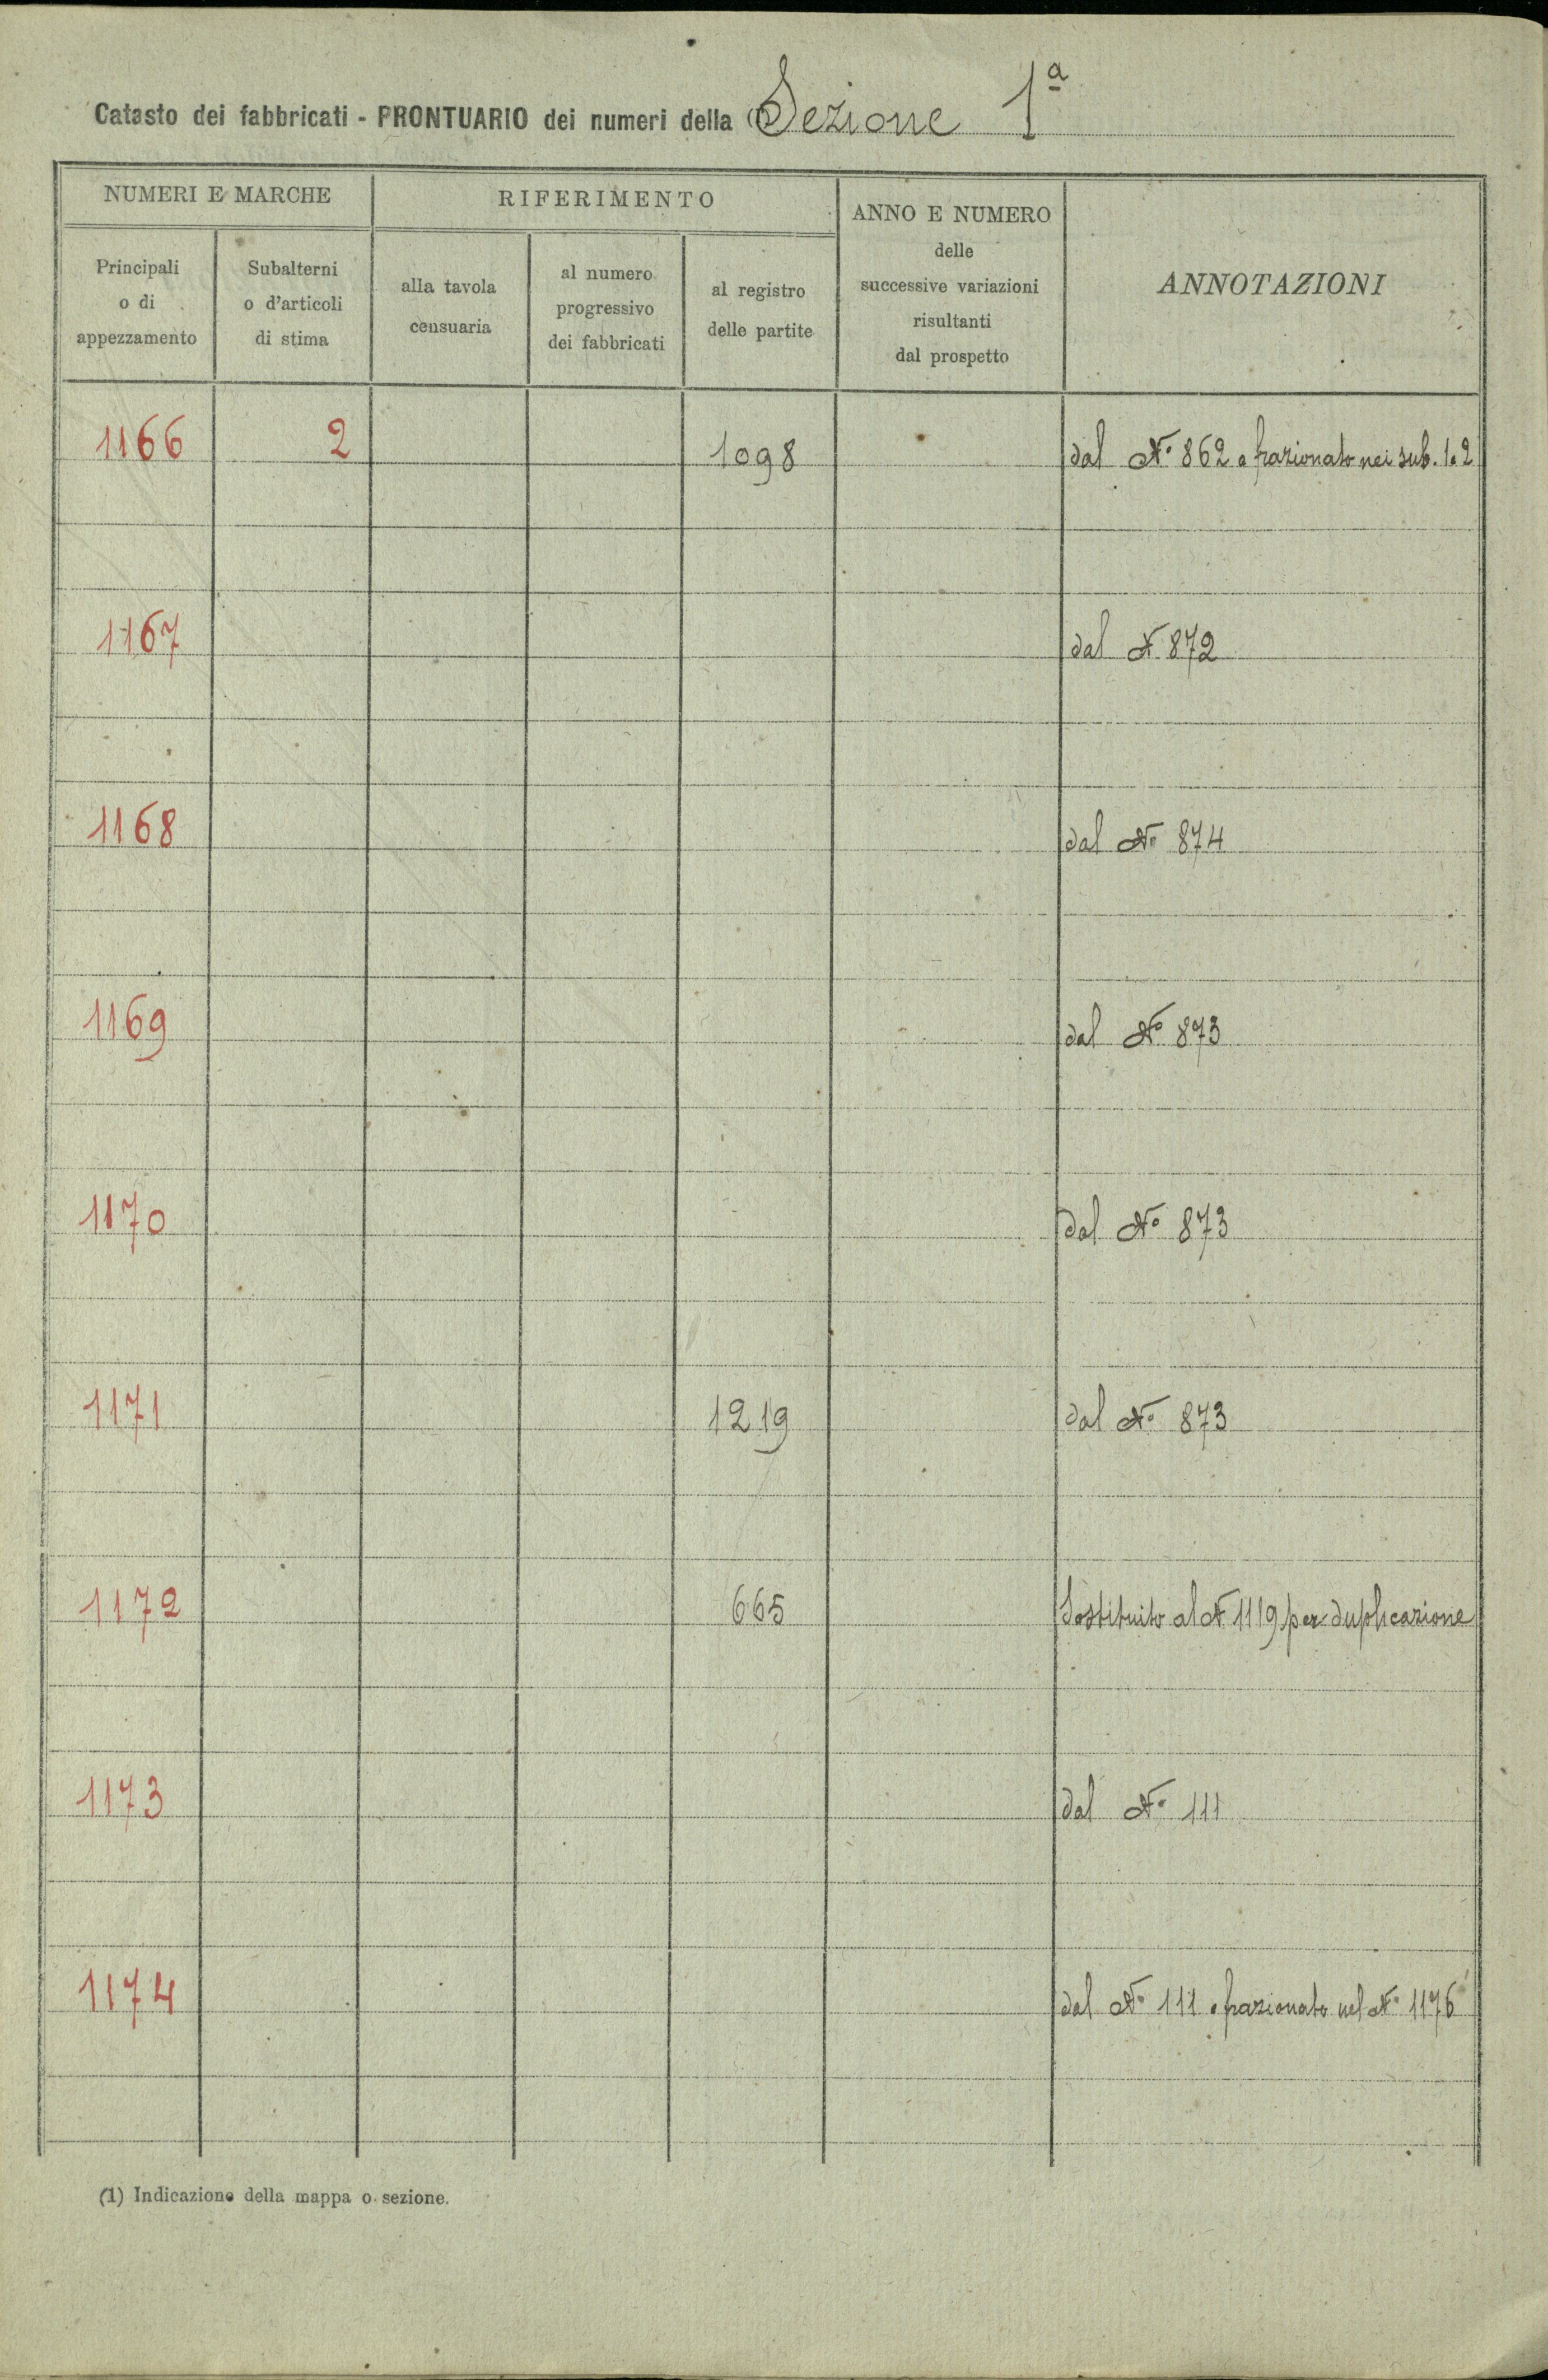 Catasto dei fabbricati - PRONTUARIO dei numeri della (1) Sezione 1ª
NUMERI E MARCHE
RIFERIMENTO
ANNO E NUMERO
delle
successive variazioni
risultanti
dal prospetto
ANNOTAZIONI
Principali
o di
appezzamento
Subalterni
o d'articoli
di stima
alla tavola
censuaria
al numero
progressivo
dei fabbricati
al registro
delle partite
1166 2 1098 dal N° 862 e frazionato nei sub. 1 e 2
1167 dal N. 872
1168 dal N° 874
1169 dal N° 873
1170 dal N° 873
1171 1219 dal N° 873
1172 665 Sostituito al N 1119 per duplicazione
1173 dal N° 111
1174 dal N° 111 e frazionato nel N° 1176
(1) Indicazione della mappa o sezione.